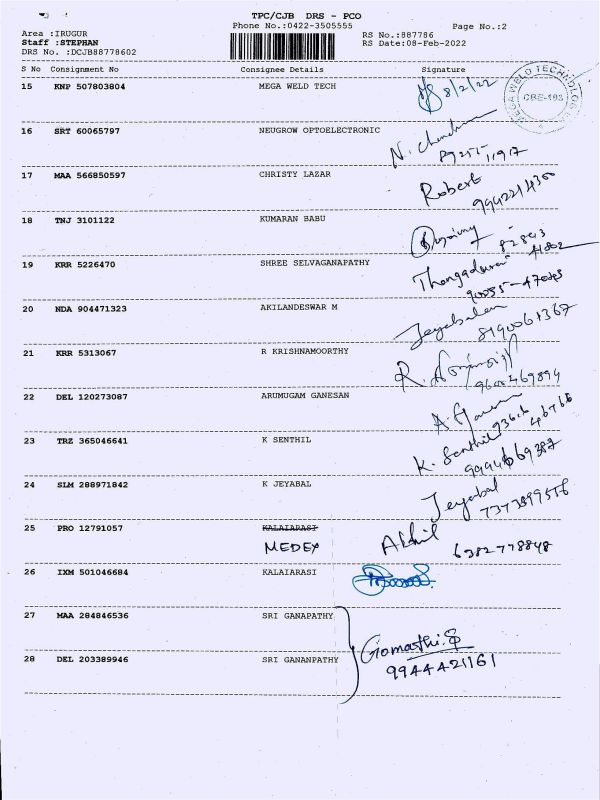 TPC/CJB DRS - PCO
Phone No.:0422-3505555
Page No.:2
Area :IRUGUR
RS No.:887786
Staff :STEPHAN
RS Date:08-Feb-2022
DRS No. :DCJB88778602
S No Consignment No Consignee Details Signature
15 KNP 507803804 MEGA WELD TECH 8/2/22
MEGA WELD TECHNOLOGY
CBE-103
16 SRT 60065797 NEUGROW OPTOELECTRONIC
89255 11917
17 MAA 566850597 CHRISTY LAZAR Robert
9942214300
18 TNJ 3101122 KUMARAN BABU
19 KRR 5226470 SHREE SELVAGANAPATHY Thangadurai
20 NDA 904471323 AKILANDESWAR M Jeyabalan
8190061367
21 KRR 5313067 R KRISHNAMOORTHY
9600469894
22 DEL 120273087 ARUMUGAM GANESAN
23 TRZ 365046641 K SENTHIL K. Senthil
9994669387
24 SLM 288971842 K JEYABAL Jeyabal
7373899556
25 PRO 12791057 KALAIARASI
MEDEX Akhil
6382778848
26 IXM 501046684 KALAIARASI
27 MAA 284846536 SRI GANAPATHY
Gomathi.
28 DEL 203389946 SRI GANANPATHY
9944421161